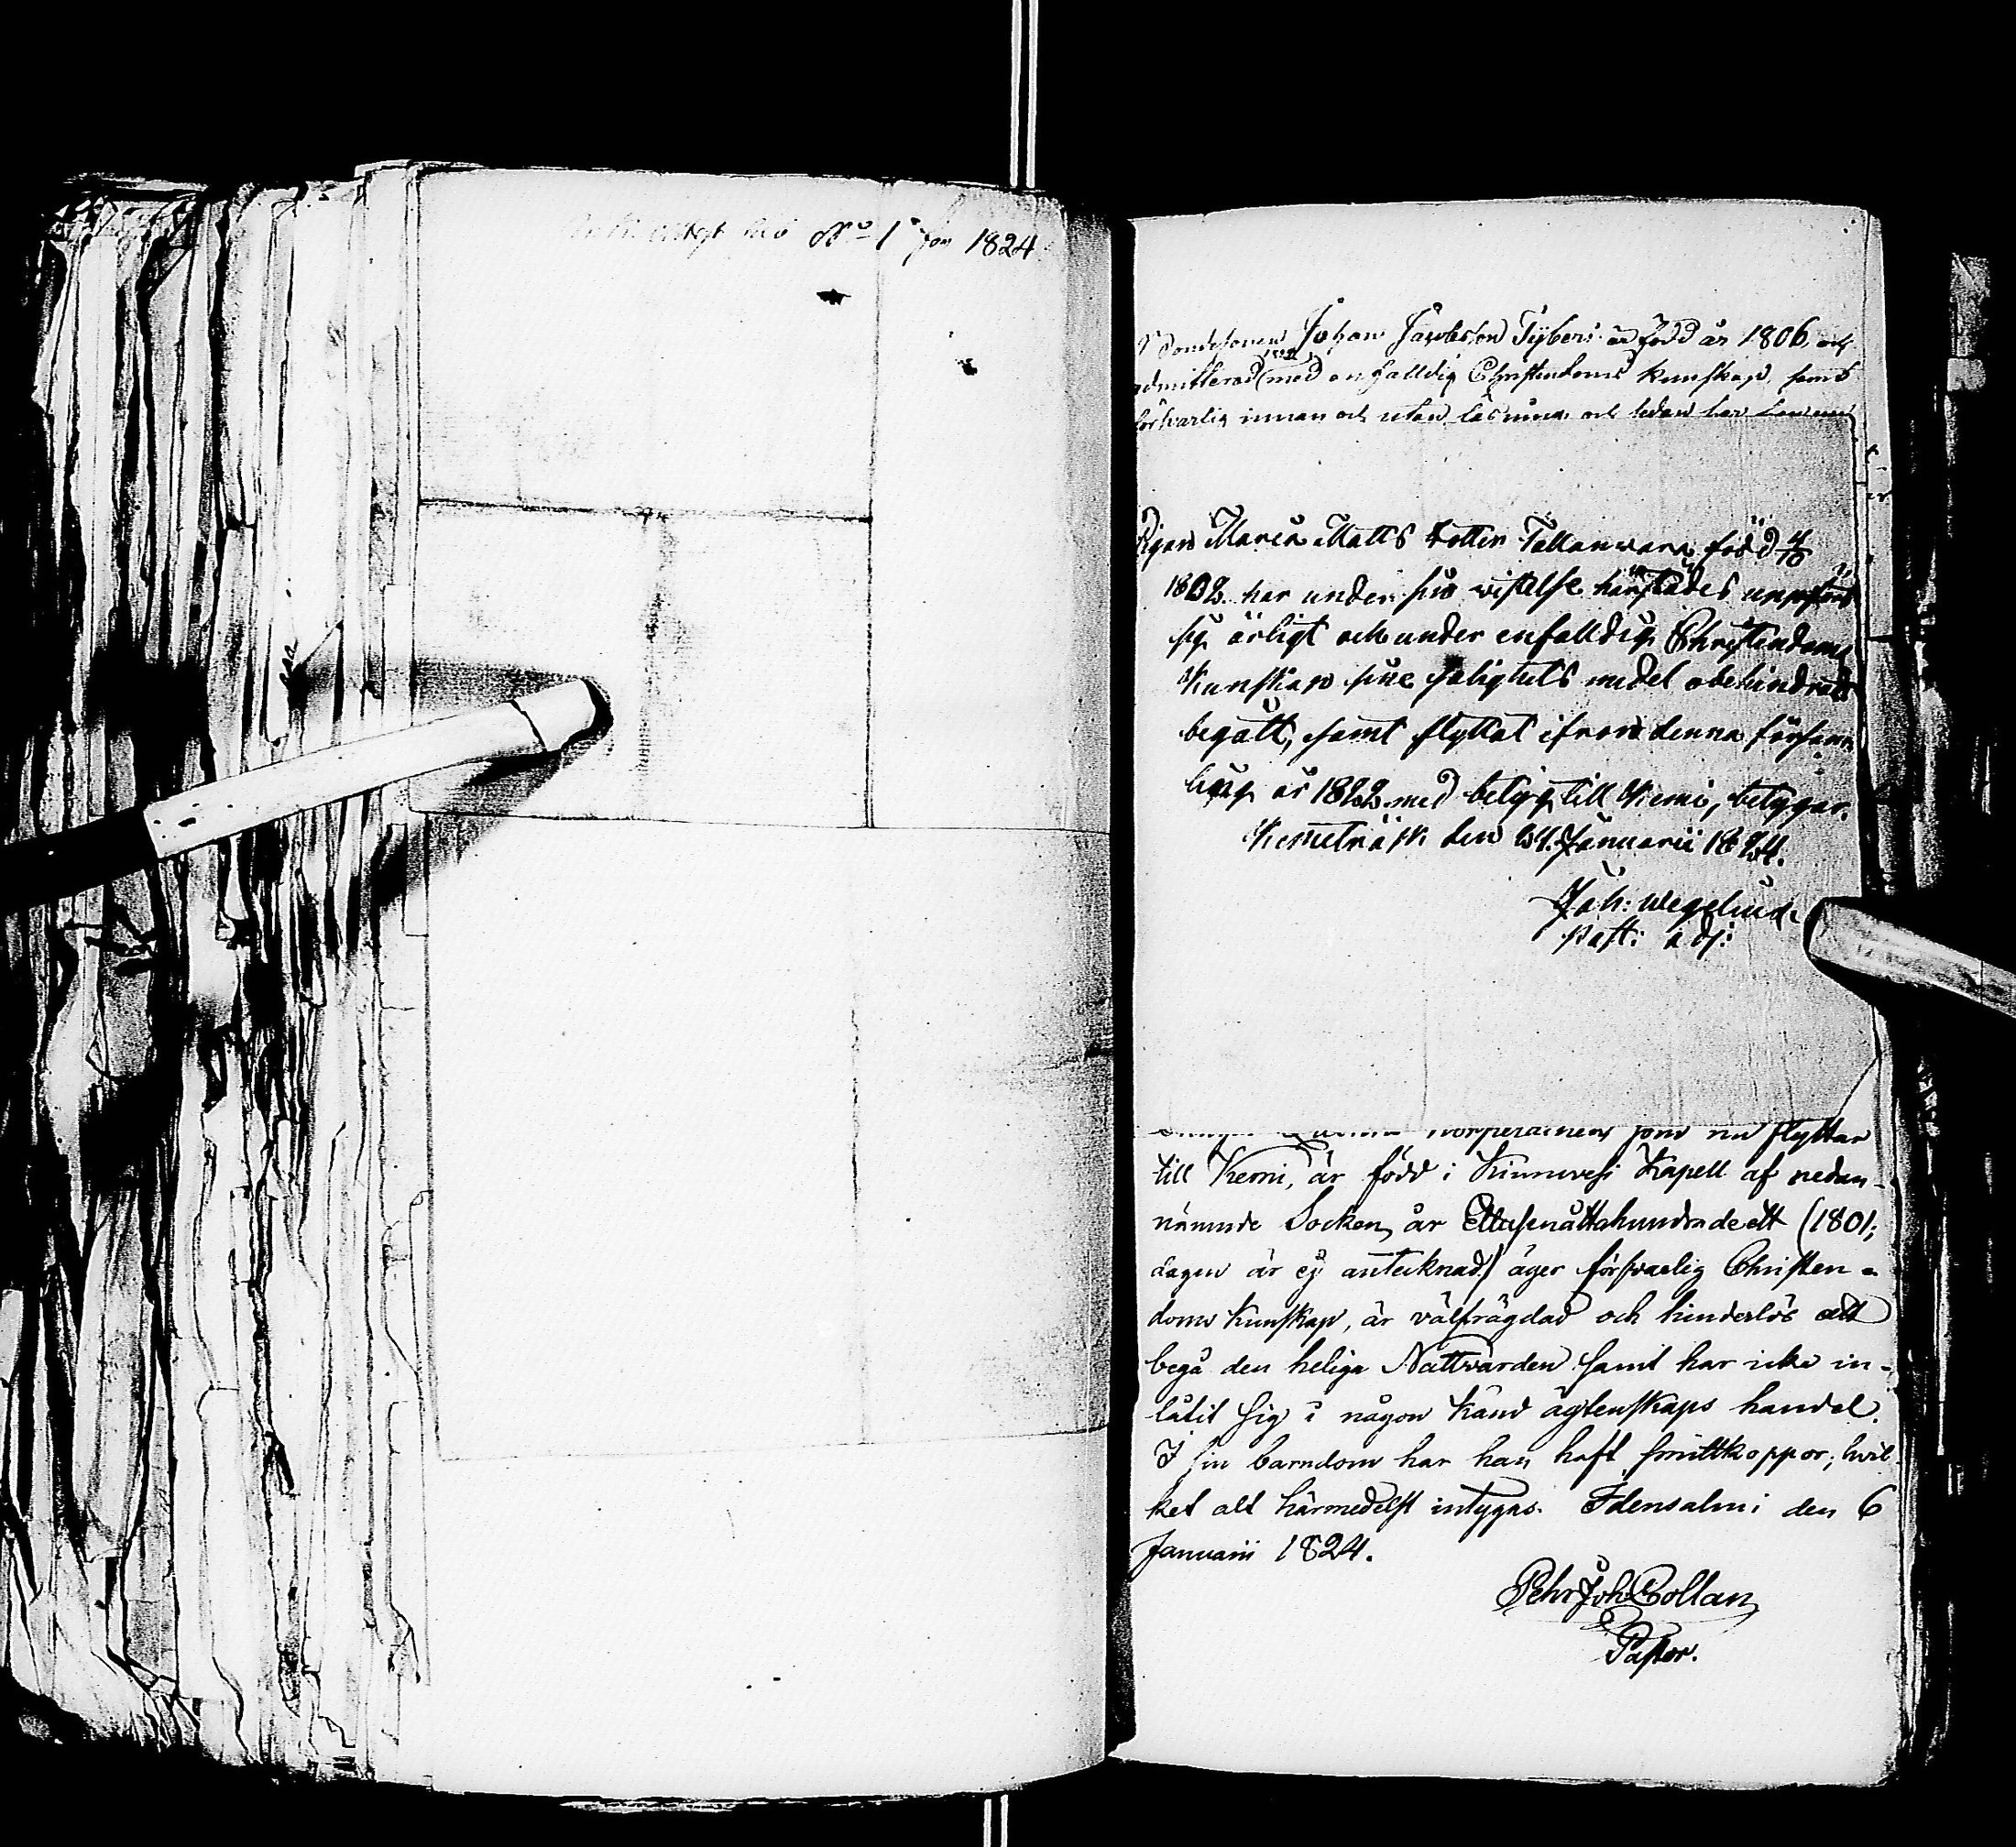 No 1 för 1824
Johan Jacobsson Tyberi är född år 1806, och
admitterad med enfalldig Christendoms kunskap, samt
försvarlig innan och utan läsning och sedan har
Pigan Maria Matts dotter Tallanvara född
1802 har under sin vistelse härstädes uppfört
sig ärligt och under enfalldig Christendoms
Kunskap sine salighets medel obehindradt
begått, samt flyttat ifrån denna försam
ling år 1822 med betyg till Kemi, betygar.
Kemiträsk den 24 Januarii 1824.
Joh: Wegelius
past: adj:
som nu flyttar
till Kemi, är född i Kiuruvesi Kapell af nedan-
nämnde Socken år Ettusenåttahundradeett (1801;
dagen är ej antecknad) äger försvarlig Christen-
doms kunskap, är välfrägdad och hinderlös att
begå den heliga Nattvarden samt har icke in-
låtit sig i någon känd ägtenskaps handel.
I sin barndom har han haft smittkoppor; hvil-
ket alt härmedelst intygas. Idensalmi den 6
Januarii 1824.
Pehr Joh Collan
Pastor.